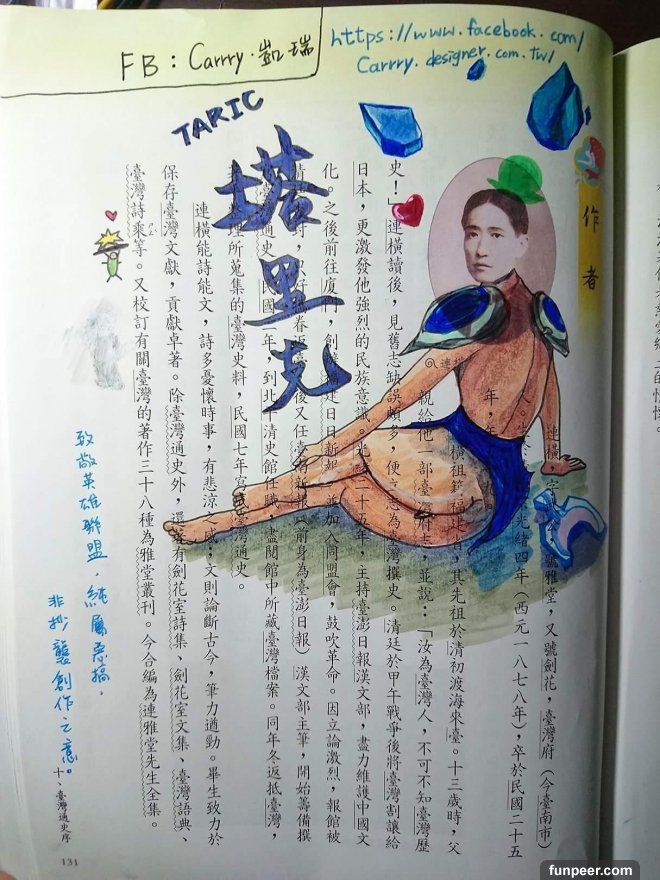 FB：Carrry.凱瑞
https://www.facebook.com/
Carrry.designer.com.tw/
TARIC
塔里克
作者
連橫
連橫，字號雅堂，又號劍花，臺灣府（今臺南市）
人。光緒四年（西元一八七八年），卒於民國二十五
年，年
橫祖籍福建省，其先祖於清初渡海來臺。十三歲時，父
親給他一部臺灣府志，並說：「汝為臺灣人，不可不知臺灣歷
史！」連橫讀後，見舊志缺誤頗多，便立志為臺灣撰史。清廷於甲午戰爭後將臺灣割讓給
日本，更激發他強烈的民族意識。光緒二十五年，主持臺澎日報漢文部，盡力維護中國文
化。之後前往廈門，創建日日新報，並加入同盟會，鼓吹革命。因立論激烈，報館被
清封，只好眷返後又任臺南新報（前身為臺澎日報）漢文部主筆，開始籌備撰
通史。民國年，到北清史館任職，盡閱館中所藏臺灣檔案。同年冬返抵臺灣，
理所蒐集的臺灣史料，民國七年寫臺灣通史。
連橫能詩能文，詩多憂懷時事，有悲涼之感；文則論斷古今，筆力遒勁。畢生致力於
保存臺灣文獻，貢獻卓著。除臺灣通史外，還有劍花室詩集、劍花室文集、臺灣語典、
臺灣詩乘等。又校訂有關臺灣的著作三十八種為雅堂叢刊。今合編為連雅堂先生全集。
致敬英雄聯盟，純屬惡搞，
非抄襲創作之意。
十、臺灣通史序
131
funpeer.com